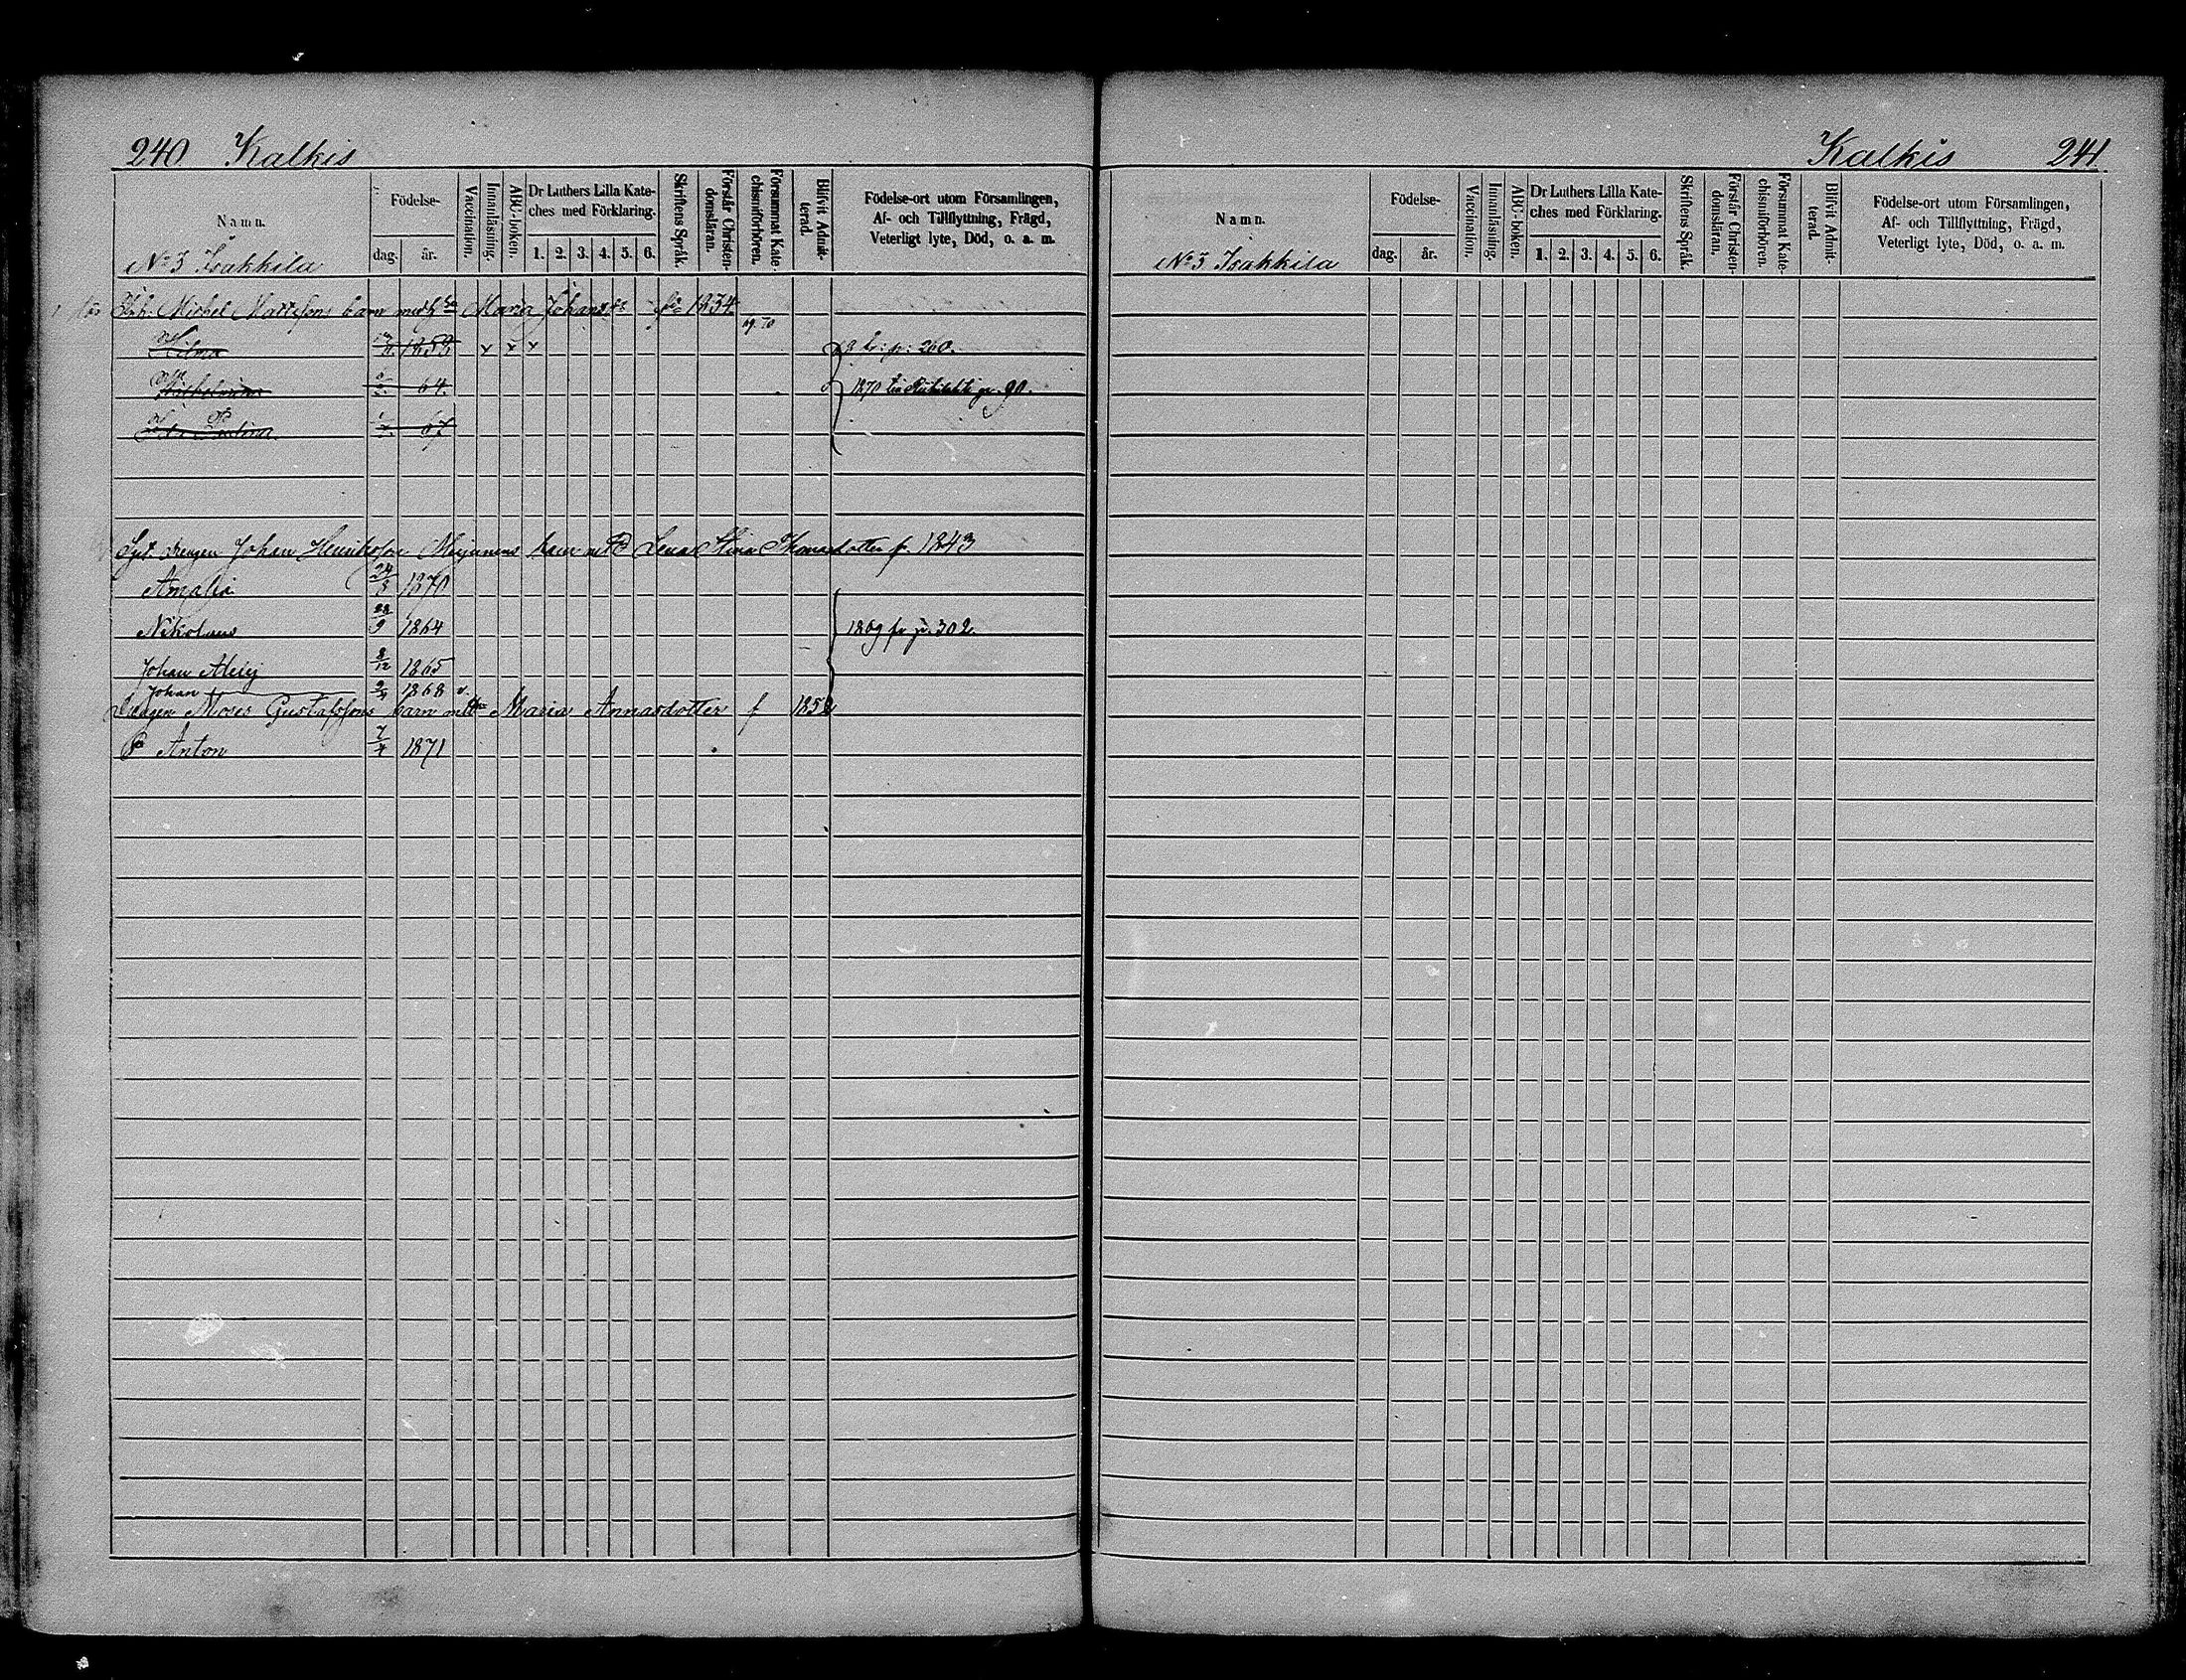 240 Kalkis
Namn.
Födelse-
dag. år.
Vaccination.
Innanläsning.
ABC-boken.
Dr Luthers Lilla Kate-
ches med Förklaring.
1. 2. 3. 4. 5. 6.
Skriftens Språk.
Förstår Christen-
domsläran.
Försummat Kate-
chismiförhören.
Blifvit Admit-
terad.
Födelse-ort utom Församlingen,
Af- och Tillflyttning, Frägd,
Veterligt lyte, Död, o. a. m.
No 3 Isakkila
Michel Mattssons barn med Maria Johansd 1834
69. 70
Hilma 1858 x x x fr: p: 260.
Wilhelmina 64. 1870 p. 90.
Ida 67
Sgt. drengen Johan Henriksson barn med Lena Stina Thomasdotter f. 1843
Amalia 24/3 1870
Nikolaus 28/9 1864 1869 fr p. 302.
Johan Alexij 8/12 1865
Johan 2/4 1868 v.
Drengen Moses Gustafssons barn med Maria Annasdotter f 1852
Anton 7/4 1871
Kalkis 241
Namn.
Födelse-
dag. år.
Vaccination.
Innanläsning.
ABC-boken.
Dr Luthers Lilla Kate-
ches med Förklaring.
1. 2. 3. 4. 5. 6.
Skriftens Språk.
Förstår Christen-
domsläran.
Försummat Kate-
chismiförhören.
Blifvit Admit-
terad.
Födelse-ort utom Församlingen,
Af- och Tillflyttning, Frägd,
Veterligt lyte, Död, o. a. m.
No 3 Isakkila